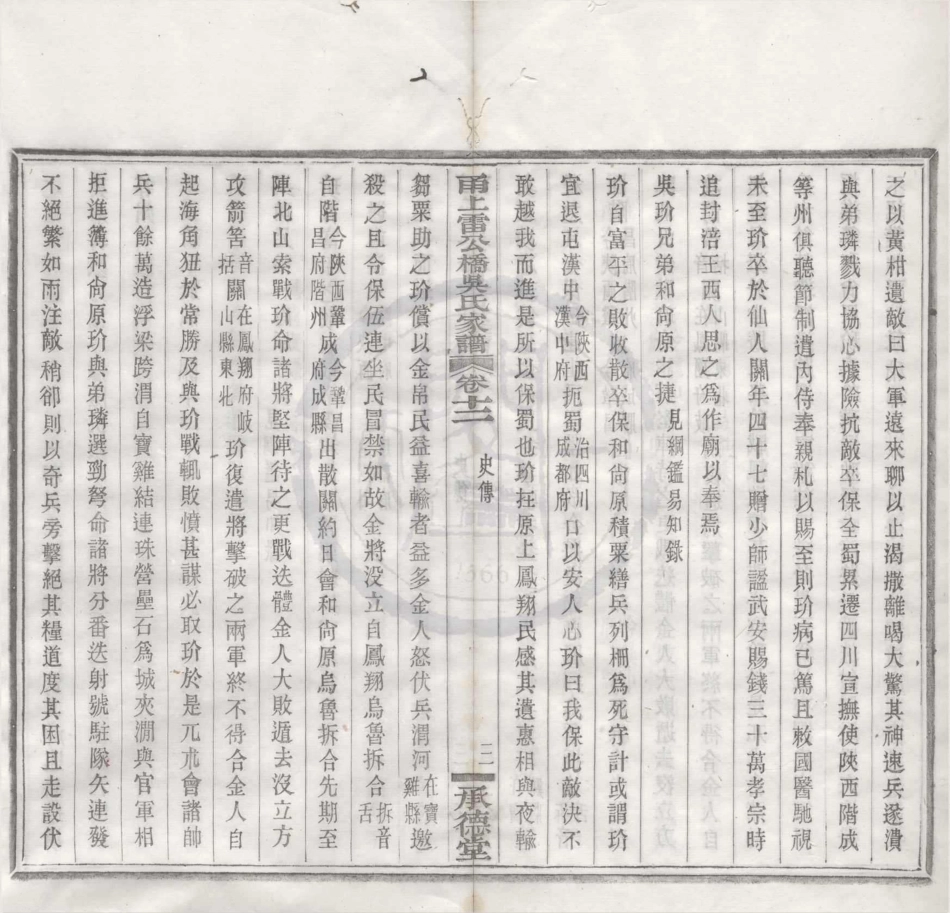 之以黃柑遺敵曰大軍遠來聊以止渴撒離喝大驚其神速兵遂潰
與弟璘戮力協心據險抗敵卒保全蜀累遷四川宣撫使陝西階成
等州俱聽節制遣內侍奉親札以賜至則玠病已篤且敕國醫馳視
未至玠卒於仙人關年四十七贈少師諡武安賜錢三十萬孝宗時
追封涪王西人思之爲作廟以奉焉
吳玠兄弟和尙原之捷見綱鑑易知錄
玠自富平之敗收散卒保和尙原積粟繕兵列柵爲死守計或謂玠
宜退屯漢中今陝西漢中府扼蜀治四川成都府口以安人心玠曰我保此敵決不
敢越我而進是所以保蜀也玠在原上鳳翔民感其遺惠相與夜輸
甬上雷公橋吳氏家譜 卷十二 史傳 二 承德堂
芻粟助之玠償以金帛民益喜輸者益多金人怒伏兵渭河在寶雞縣邀
殺之且令保伍連坐民冒禁如故金將没立自鳳翔烏魯拆合拆音舌
自階今陝西鞏昌府階州成今鞏昌府成縣出散關約日會和尙原烏魯拆合先期至
陣北山索戰玠命諸將堅陣待之更戰迭體金人大敗遁去沒立方
攻箭筈音括關在鳳翔府岐山縣東北玠復遣將擊破之兩軍終不得合金人自
起海角狃於常勝及與玠戰輒敗憤甚謀必取玠於是兀朮會諸帥
兵十餘萬造浮梁跨渭自寶雞結連珠營壘石爲城夾澗與官軍相
拒進簿和尙原玠與弟璘選勁弩命諸將分番迭射號駐隊矢連發
不絕繁如雨注敵稍卻則以奇兵旁擊絕其糧道度其困且走設伏